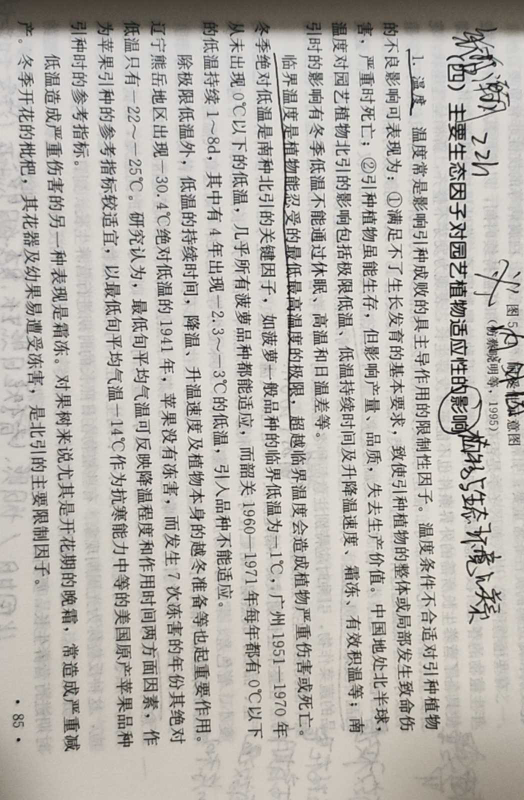 图5
意图
（ 明等，1995）
22h
（四）主要生态因子对园艺植物适应性的影响
植物与生态环境
1. 温度 温度常是影响引种成败的具主导作用的限制性因子。温度条件不合适对引种植物
的不良影响可表现为：①满足不了生长发育的基本要求，致使引种植物的整体或局部发生致命伤
害，严重时死亡；②引种植物虽能生存，但影响产量、品质，失去生产价值。中国地处北半球，
温度对园艺植物北引的影响包括极限低温、低温持续时间及升降温速度、霜冻、有效积温等；南
引时的影响有冬季低温不能通过休眠、高温和日温差等。
临界温度是植物能忍受的最低最高温度的极限，超越临界温度会造成植物严重伤害或死亡。
冬季绝对低温是南种北引的关键因子，如菠萝一般品种的临界低温为－1℃，广州1951—1970年
从未出现0℃以下的低温，几乎所有菠萝品种都能适应，而韶关1960—1971年每年都有0℃以下
的低温持续1～8d，其中有4年出现－2.3～－3℃的低温，引入品种不能适应。
除极限低温外，低温的持续时间，降温、升温速度及植物本身的越冬准备等也起重要作用。
辽宁熊岳地区出现－30.4℃绝对低温的1941年，苹果没有冻害，而发生7次冻害的年份其绝对
低温只有－22～－25℃。研究认为，最低旬平均气温可反映降温程度和作用时间两方面因素，作
为苹果引种的参考指标较适宜，以最低旬平均气温－14℃作为抗寒能力中等的美国原产苹果品种
引种时的参考指标。
低温造成严重伤害的另一种表现是霜冻。对果树来说尤其是开花期的晚霜，常造成严重减
产。冬季开花的枇杷，其花器及幼果易遭受冻害，是北引的主要限制因子。
· 85 ·